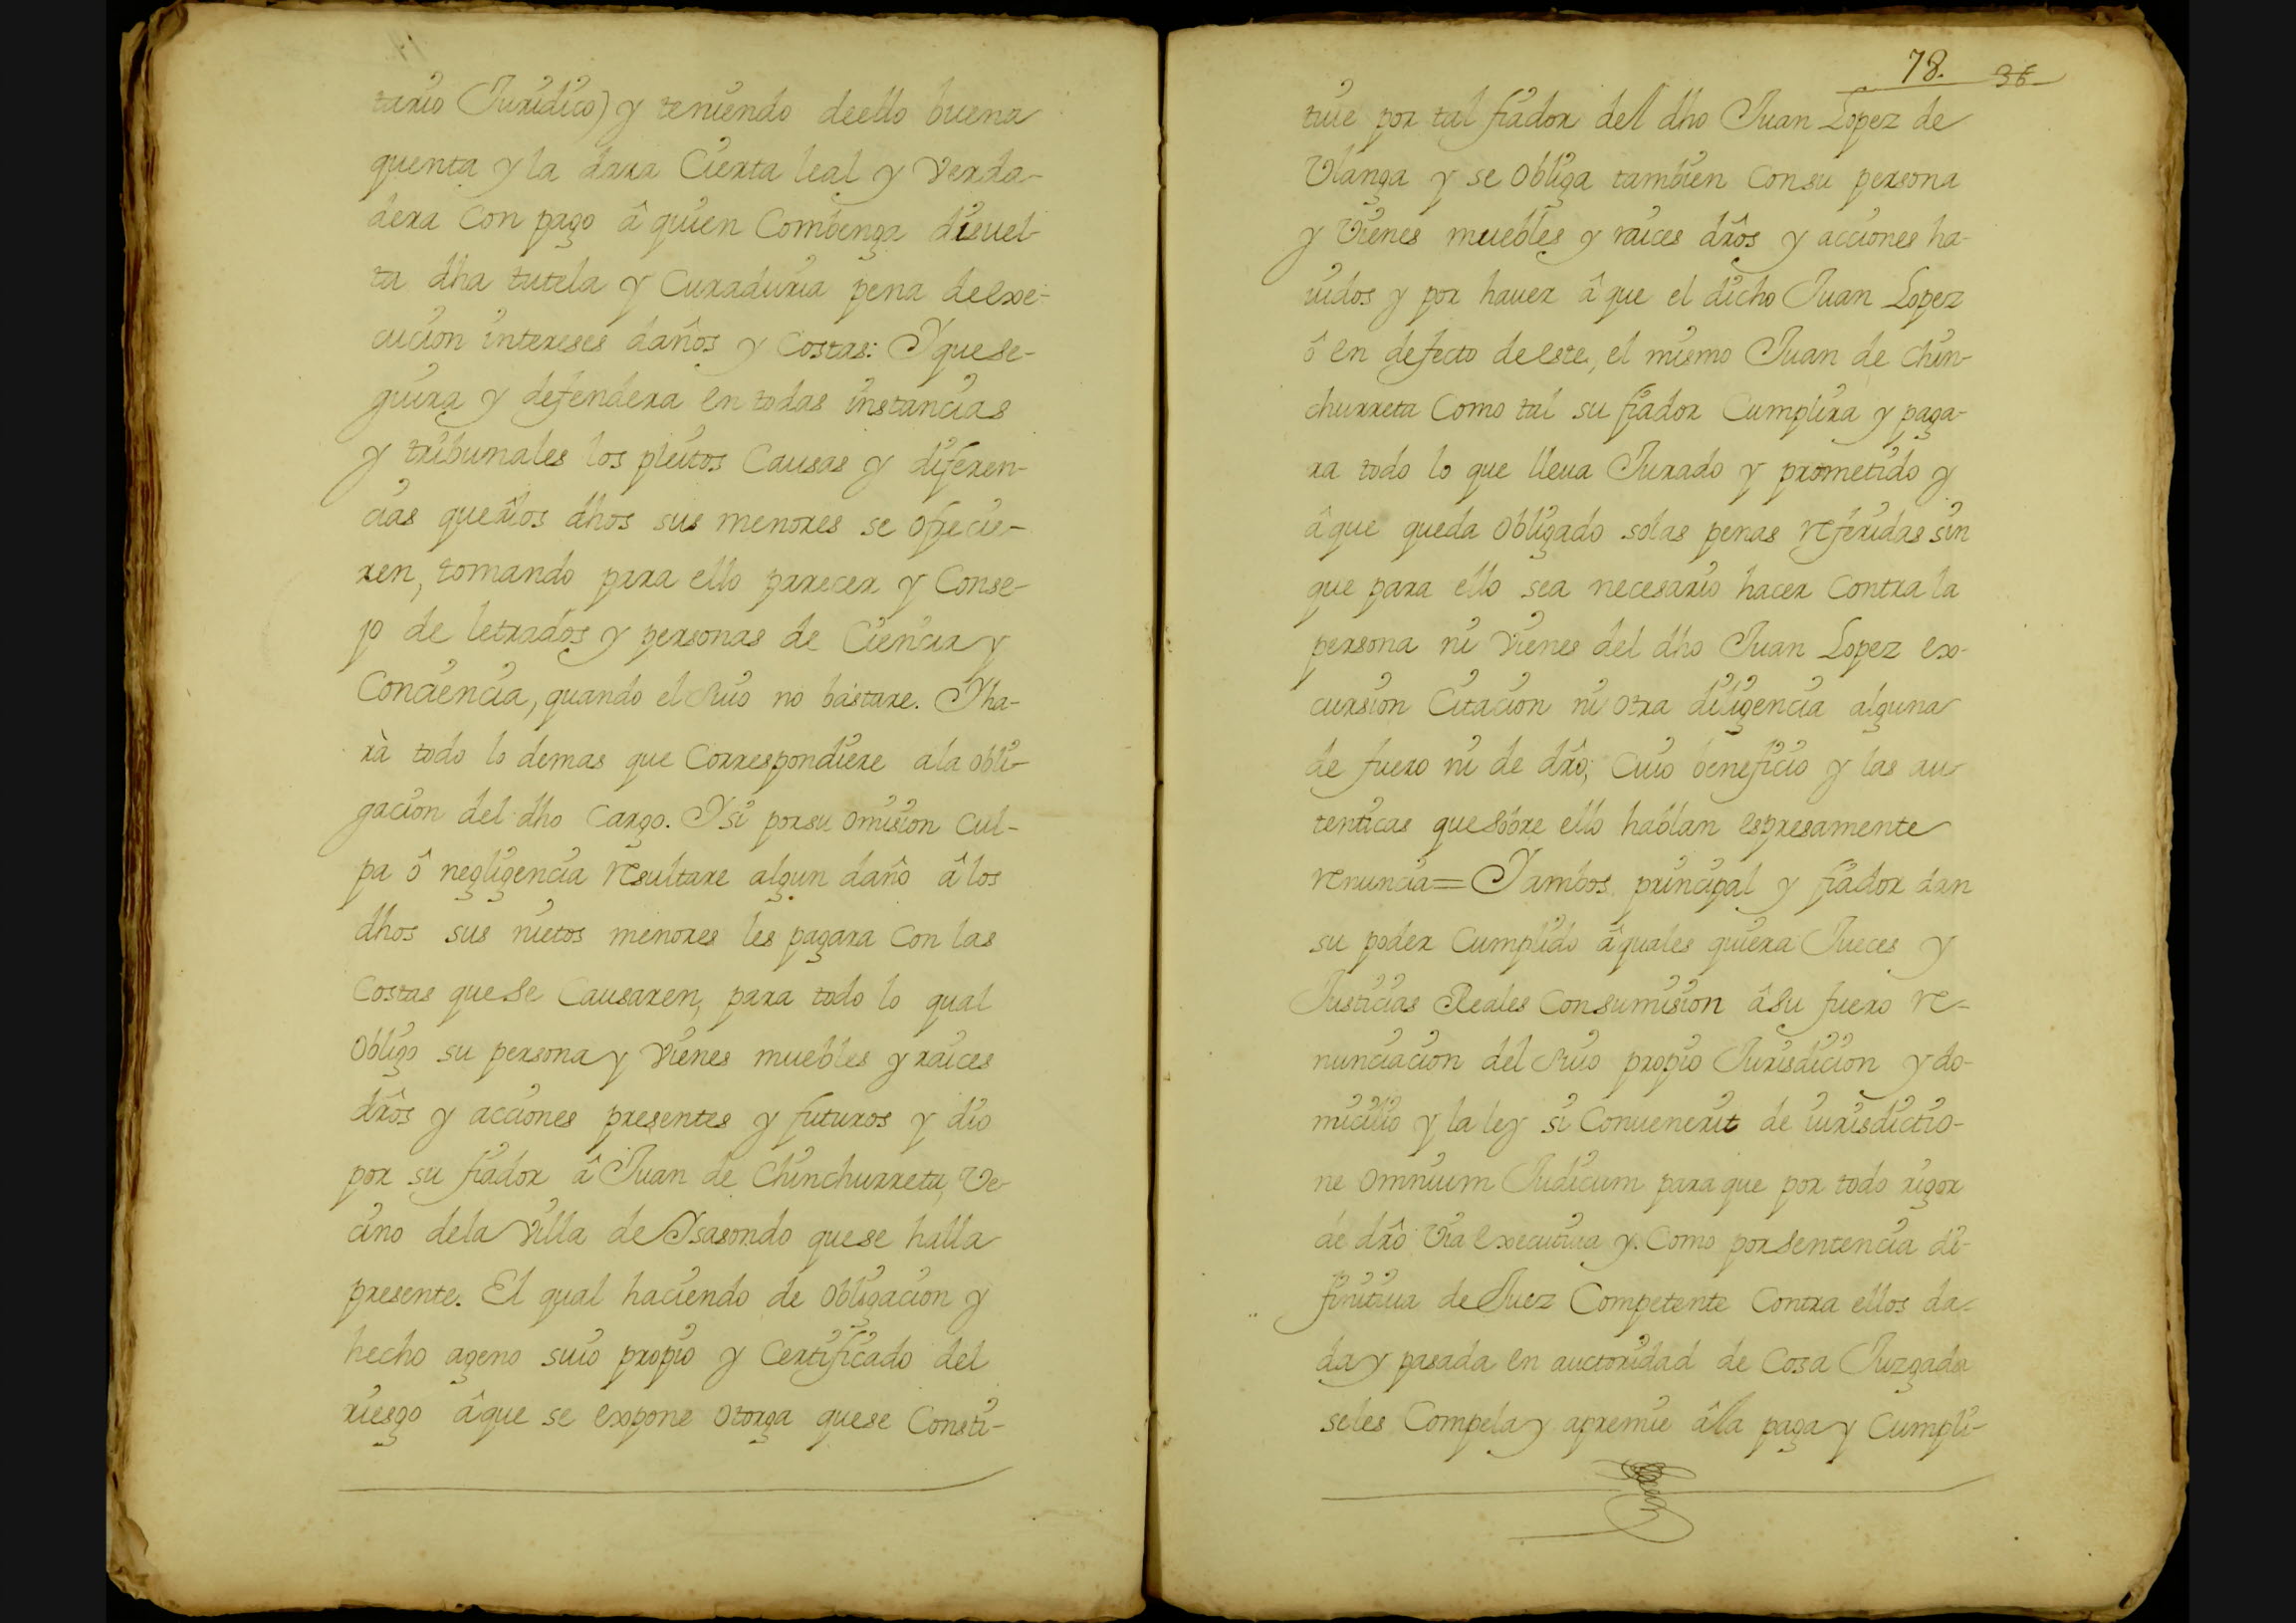 tario Juridico) y teniendo deello buena
quenta y la dara Cierta leal y Verda-
dera Con pago â quien Combenga disuel-
ta dha tutela y Curaduria pena deexe-
cucion intereses daños y Costas: Y quese-
guira y defendera en todas instancias
y tribunales los pleitos Causas y diferen-
cias que âlos dhos sus menores se ofrecie-
ren, tomando para ello parecer y Conse-
jo de letrados y personas de Ciencia y
Conciencia, quando el suio no bastare. Y ha-
rà todo lo demas que Correspondiere ala obli-
gacion del dho Cargo. Y si porsu omision Cul-
pa ô negligencia resultare algun daño â los
dhos sus nietos menores les pagara Con las
Costas quese Causaren, para todo lo qual
obligo su persona y Vienes muebles y raices
drôs y acciones presentes y futuros y dio
por su fiador â Juan de Chinchurreta, Ve-
cino dela Villa de Ysasondo quese halla
presente. El qual haciendo de obligacion y
hecho ageno suio propio y Certificado del
riesgo âque se expone otorga quese Consti-
78. 36
tuie por tal fiador del dho Juan Lopez de
Vlanga y se obliga tambien Consu persona
y Vienes muebles y raices drôs y acciones ha-
uidos y por hauer â que el dicho Juan Lopez
ô en defecto deeste, el mismo Juan de Chin-
churreta Como tal su fiador Cumplira y paga-
ra todo lo que lleua Jurado y prometido y
âque queda obligado solas penas referidas sin
que para ello sea necesario hacer Contra la
persona ni Vienes del dho Juan Lopez ex-
cursion Citacion ni otra diligencia alguna
de fuero ni de drô; Cuio beneficio y las au
tenticas quesobre ello hablan espresamente
renuncia= Yambos principal y fiador dan
su poder Cumplido âquales quiera Jueces y
Justicias Reales Consumision âsu fuero re-
nunciacion del suio propio Jurisdicion y do-
micilio y la ley si Conuenerit de iurisdictio-
ne omnium Judicum paraque por todo rigor
de drô Via executiua y Como porsentencia di-
finitiua de Juez Competente Contra ellos da-
da y pasada en auctoridad de Cosa Juzgada
seles Compela y apremie âla paga y Cumpli-